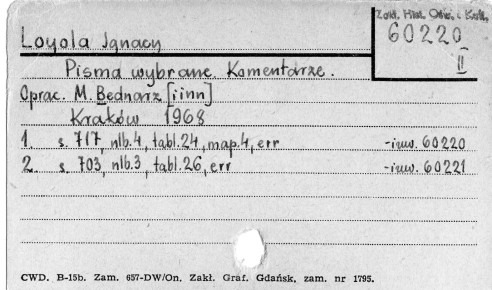 Zakł. Hist. Ośw. i Kult.
60220
II
Loyola Ignacy
Pisma wybrane. Komentarze.
Oprac. M. Bednarz [iinn]
Kraków 1968
1. s. 717, nlb.4, tabl.24, map.4, err -inw. 60220
2. s. 703, nlb.3, tabl.26, err -inw. 60221
CWD. B-15b. Zam. 657-DW/On. Zakł. Graf. Gdańsk, zam. nr 1795.